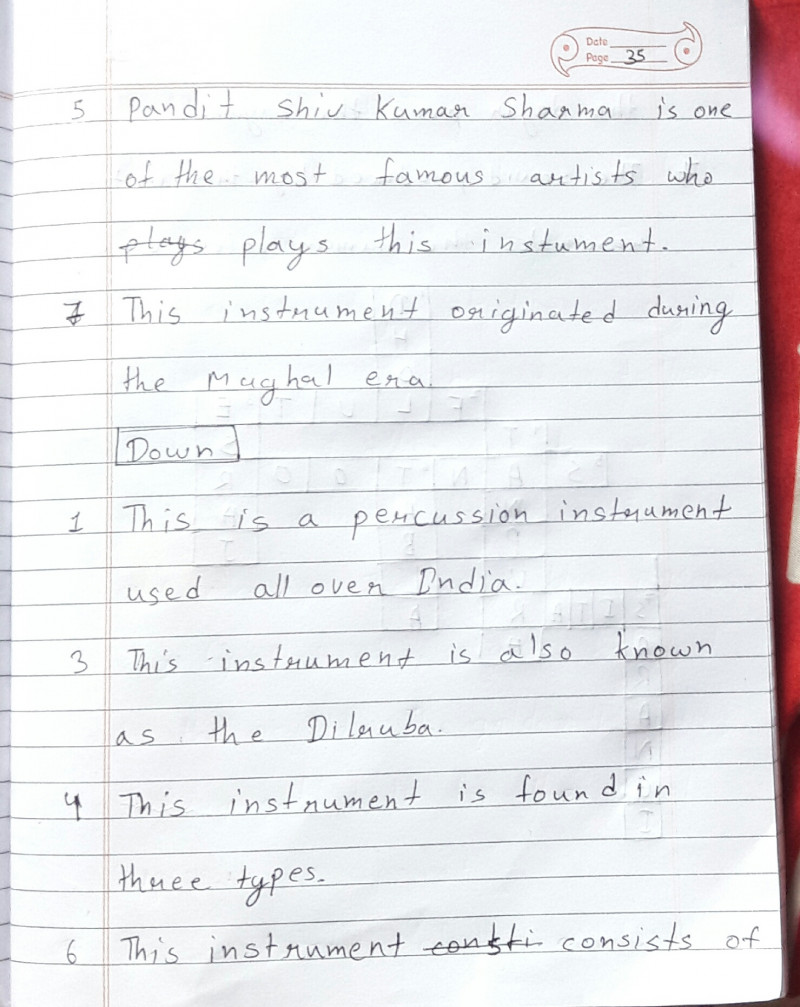 Date
Page 35
5 Pandit Shiv Kumar Sharma is one
of the most famous artists who
plays plays this instument.
7 This instrument originated during
the Mughal era.
Down
1 This is a percussion instrument
used all over India.
3 This instrument is also known
as the Dilruba.
4 This instrument is found in
three types.
6 This instrument consti consists of